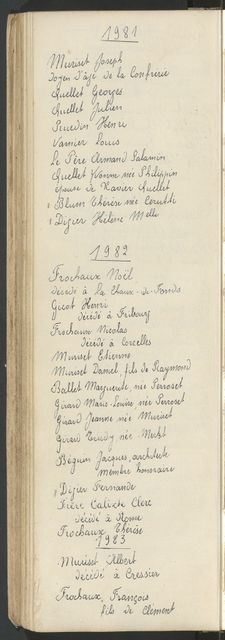 1981
Muriset Joseph
Doyen d'âge de la Confrérie
Quellet Georges
Quellet Julien
Persedin Henri
Varnier Louis
Le Père Armand Salamin
Quellet Yvonne née Philippin
épouse de Xavier Quellet
" Blumn Thérèse née Cerutti
" Digier Hélène Melle
1982
Frochaux Noël
décédé à la Chaux-de-Fonds
Gicot Henri
décédé à Fribourg
Frochaux Nicolas
décédé à Corcelles
Muriset Etienne
Muriset Daniel, fils de Raymond
Ballet Marguerite, née Perroset
Girard Marie-Louise, née Perroset
Girard Jeanne née Muriset
Girard Trudy née
Béguin Jacques, architecte
membre honoraire
" Digier Fernande
Frère Calixte Clerc
décédé à Rome
Frochaux Thérèse
1983
Muriset Albert
décédé à Cressier
Frochaux, François
fils de Clément